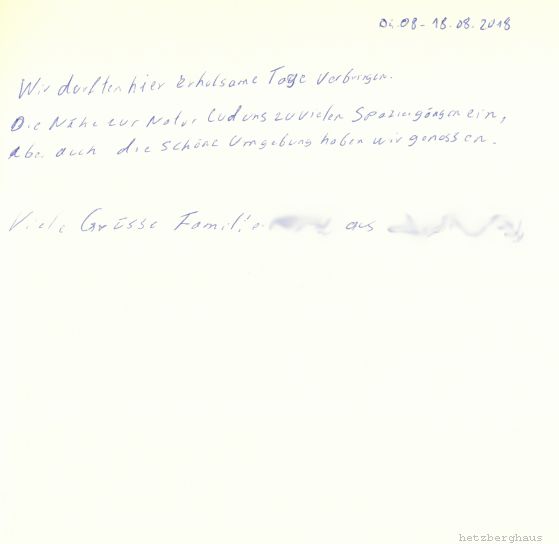 04.08 - 18.08.2018
Wir durften hier erholsame Tage verbringen.
Die Nähe zur Natur lud uns zu vielen Spaziergängen ein,
Aber auch die schöne Umgebung haben wir genossen.
Viele Grüsse Familie aus
hetzberghaus